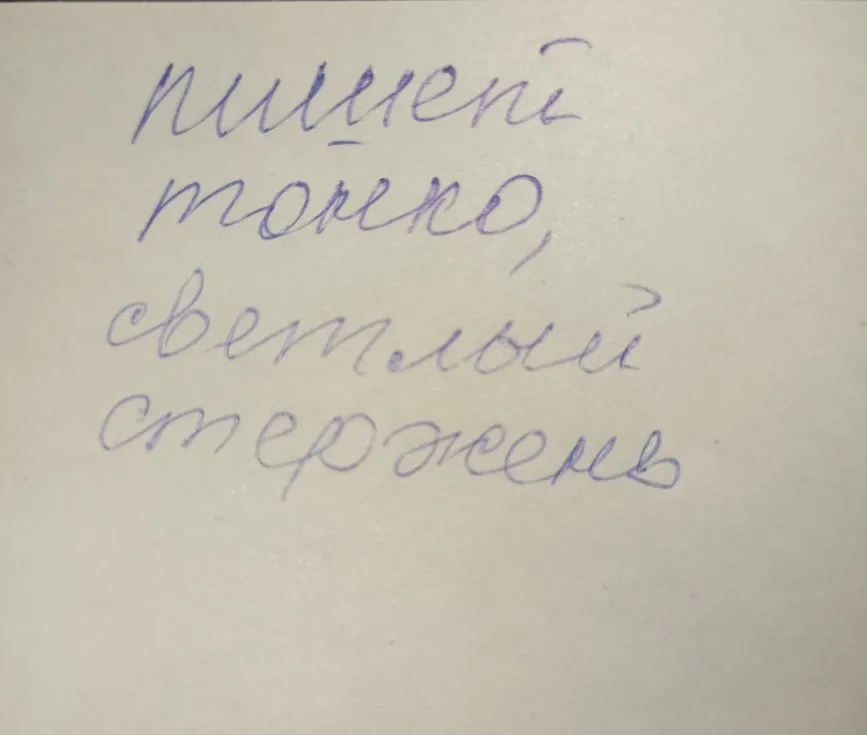 пишет
тонко,
светлый
стержень